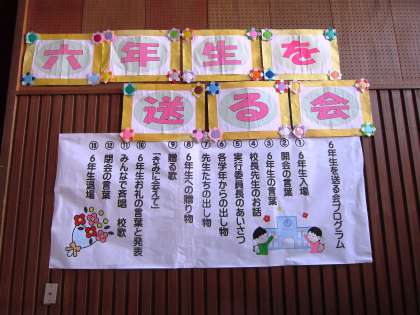 六年生を
送る会
6年生を送る会プログラム
①6年生入場
②開会の言葉
③6年生の言葉
④校長先生のお話
⑤実行委員長のあいさつ
⑥各学年からの出し物
⑦先生たちの出し物
⑧6年生への贈り物
⑨贈る歌
「きみに会えて」
⑩6年生お礼の言葉と発表
⑪みんなで斉唱 校歌
⑫閉会の言葉
⑬6年生退場